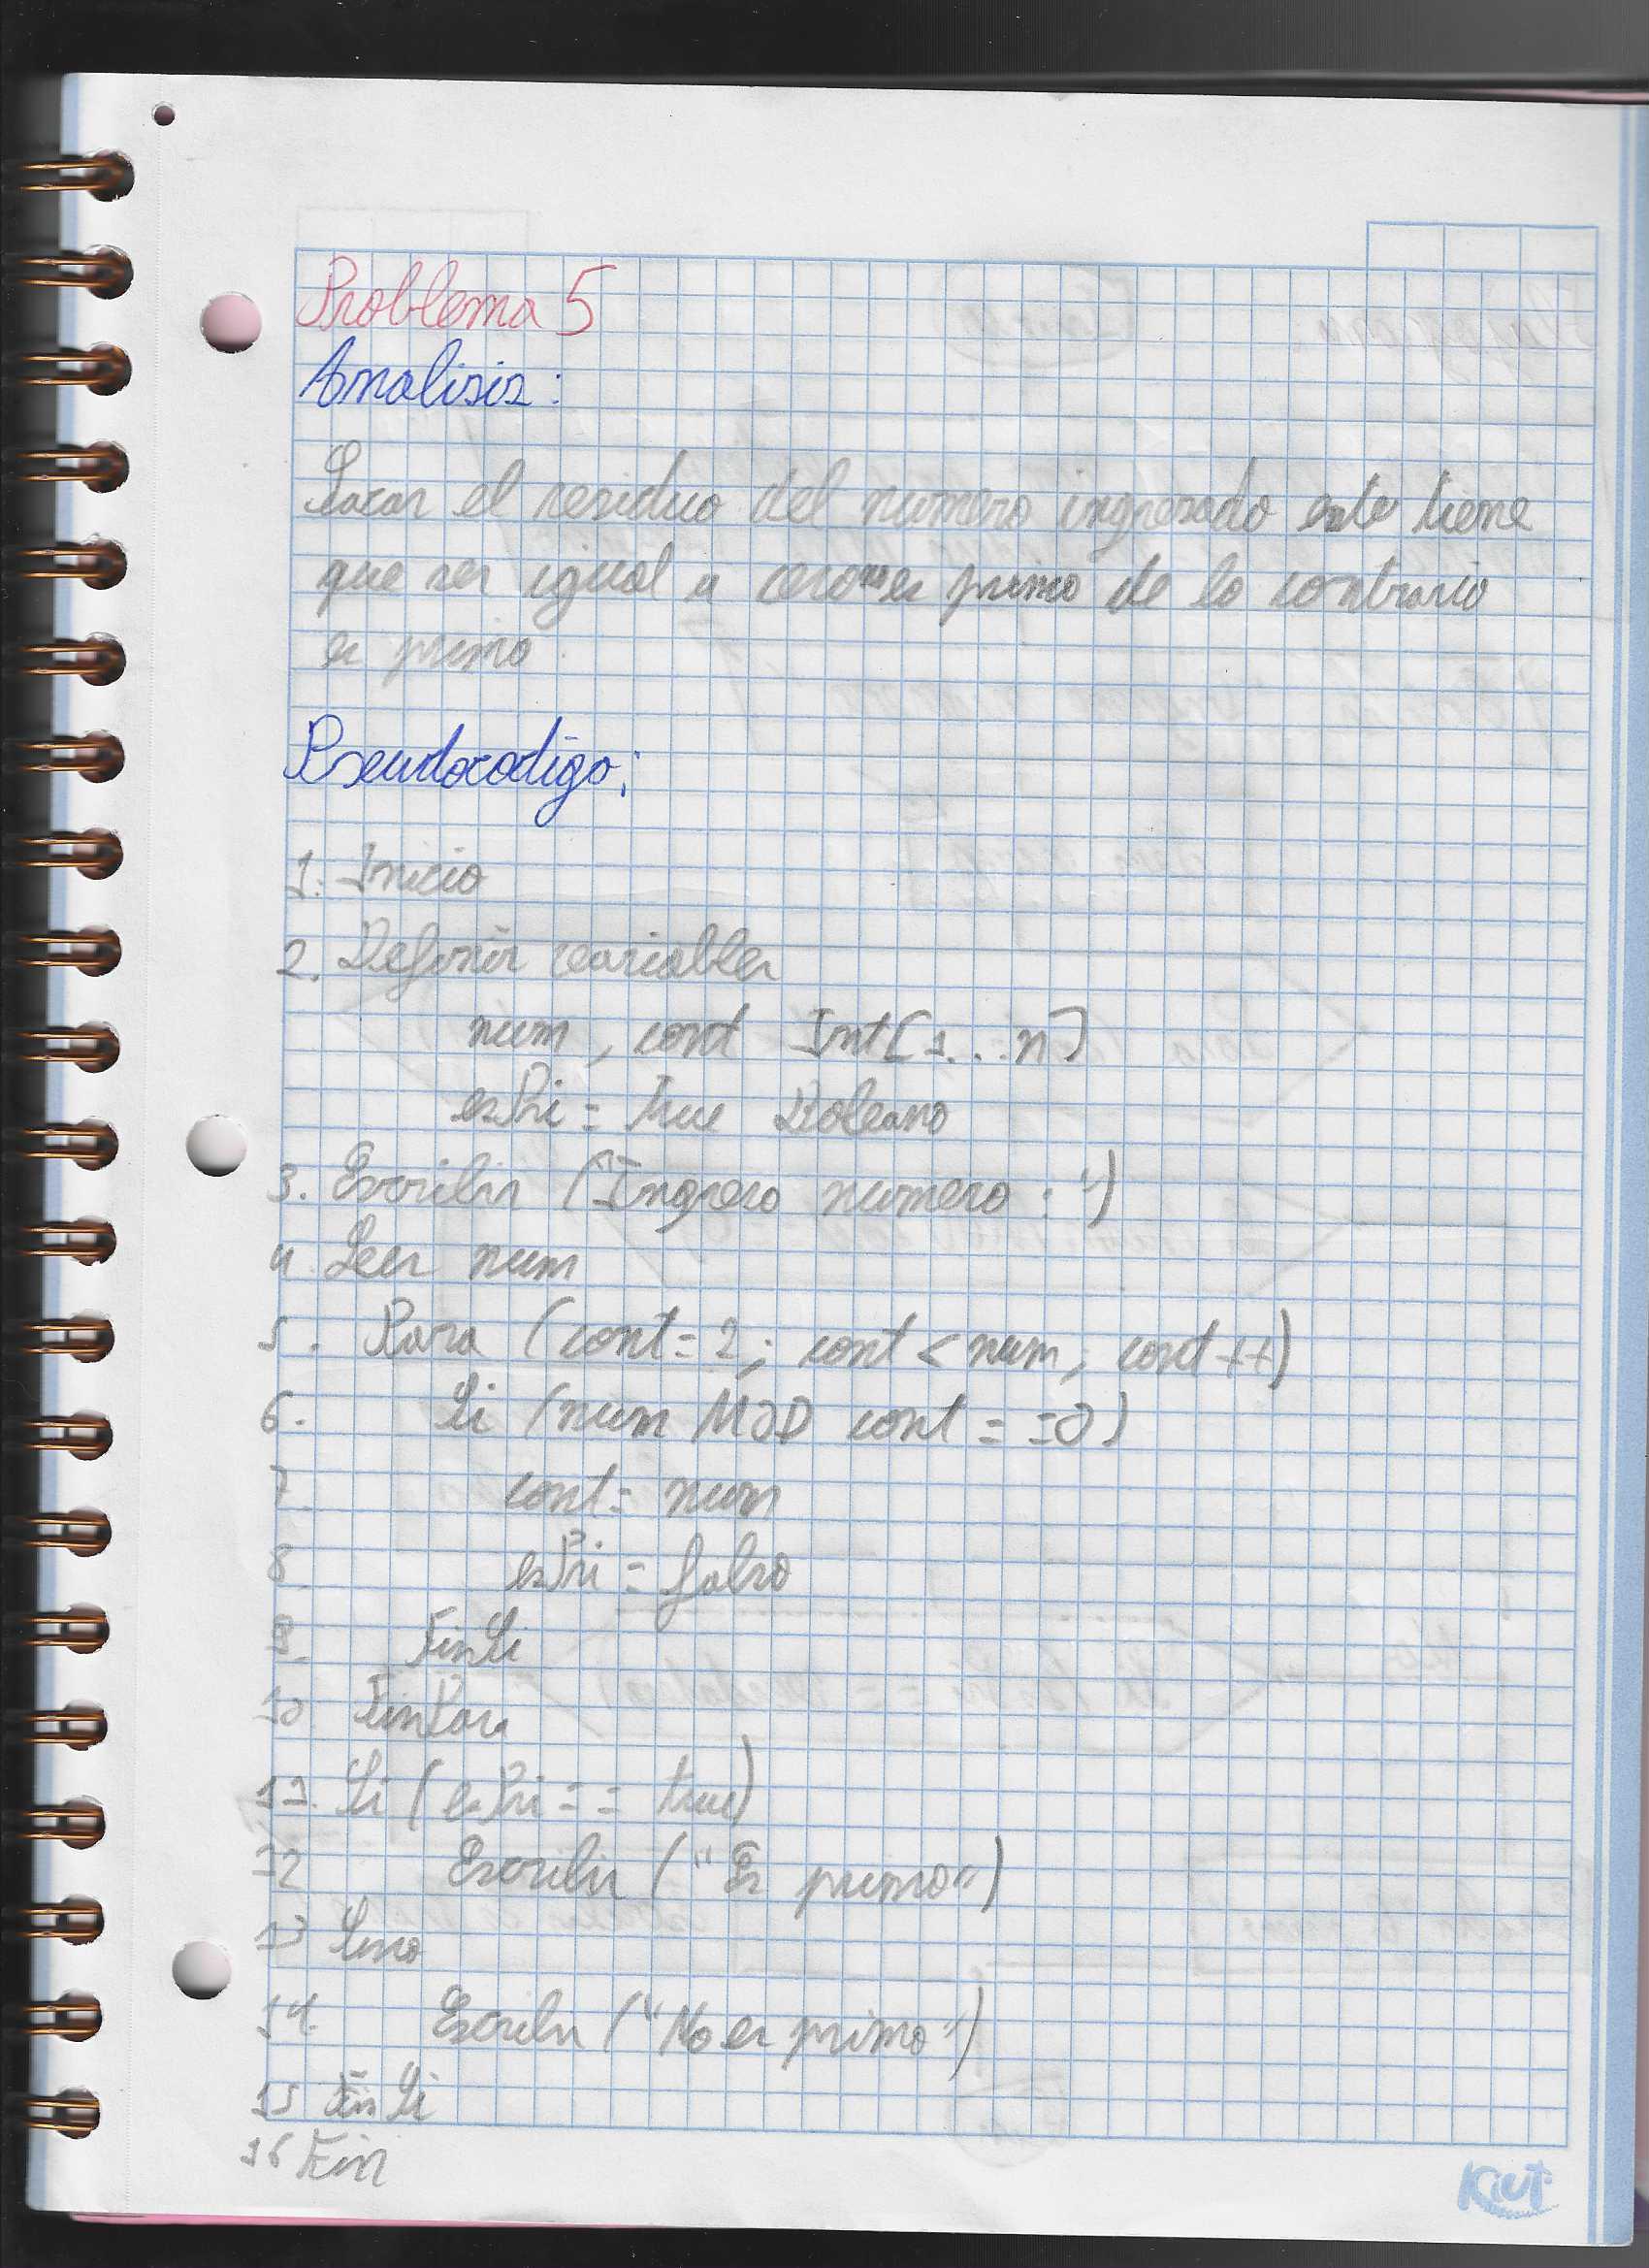 Problema 5
Analisis:
Sacar el residuo del numero ingresado este tiene
que ser igual a cero no es primo de lo contrario
es primo
Pseudocodigo:
1. Inicio
2. Definir variables
num, cont Int[1...n]
esPri = true Boleano
3. Escribir ("Ingreso numero: ")
4. Leer num
5. Para (cont=2; cont<num; cont++)
6. Si (num MOD cont==0)
7. cont= num
8. esPri = falso
9. FinSi
10 FinPara
11. Si (esPri == true)
12 Escribir ("Es primo")
13 Sino
14. Escribir ("No es primo")
15 FinSi
16 Fin
Kiut